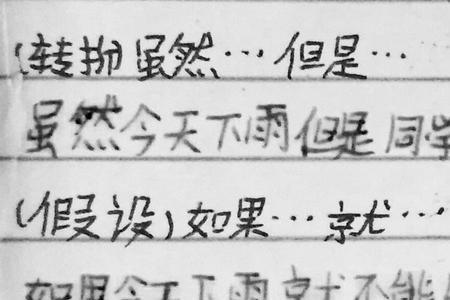 (转折虽然…但是…
虽然今天下雨但是同学
(假设)如果…就…
如果今天下雨就不能